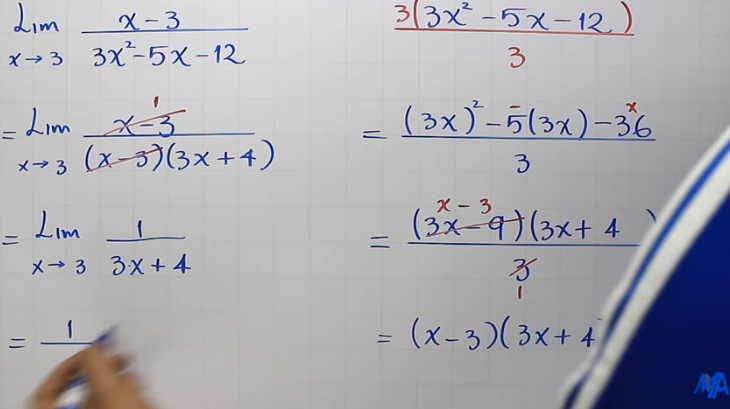 Lim x→3 (x-3)/(3x²-5x-12)
= Lim x→3 (x-3)/((x-3)(3x+4)) 1
= Lim x→3 1/(3·x+4)
= 1
3(3x²-5x-12)/3
= ((3x)²-5(3x)-36)/3 - x
= ((3x-9)(3x+4)/3 x-3 1
= (x-3)(3x+4
MA